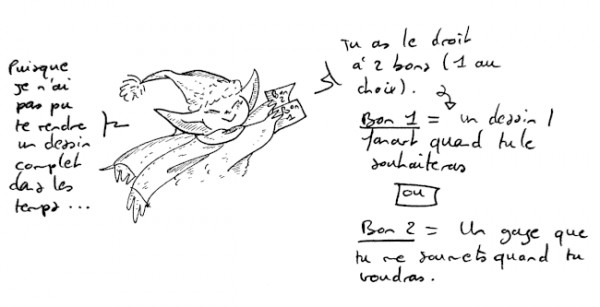 Puisque
je n'ai
pas pu
te rendre
un dessin
complet
dans les
temps...
Bon
2
Bon
1
Tu as le droit
à 2 bons (1 au
choix).
Bon 1 = un dessin /
fanart quand tu le
souhaiteras
ou
Bon 2 = Un gage que
tu me soumets quand tu
voudras.